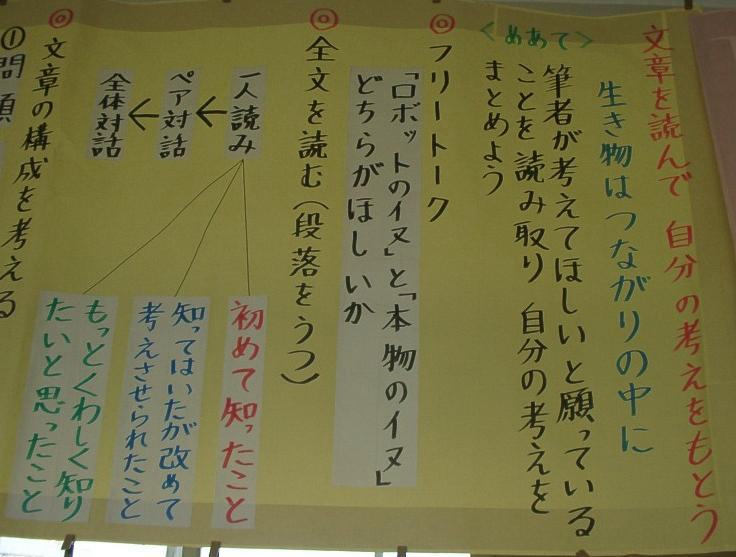 文章を読んで 自分の考えをもとう
生き物はつながりの中に
<めあて>
筆者が考えてほしいと願っている
ことを読み取り 自分の考えを
まとめよう
◎フリートーク
「ロボットのイヌ」と「本物のイヌ」
どちらがほしいか
◎全文を読む(段落をうつ)
一人読み
←
ペア対話
←
全体対話
初めて知ったこと
知ってはいたが改めて
考えさせられたこと
もっとくわしく知り
たいと思ったこと
◎文章の構成を考える
①問